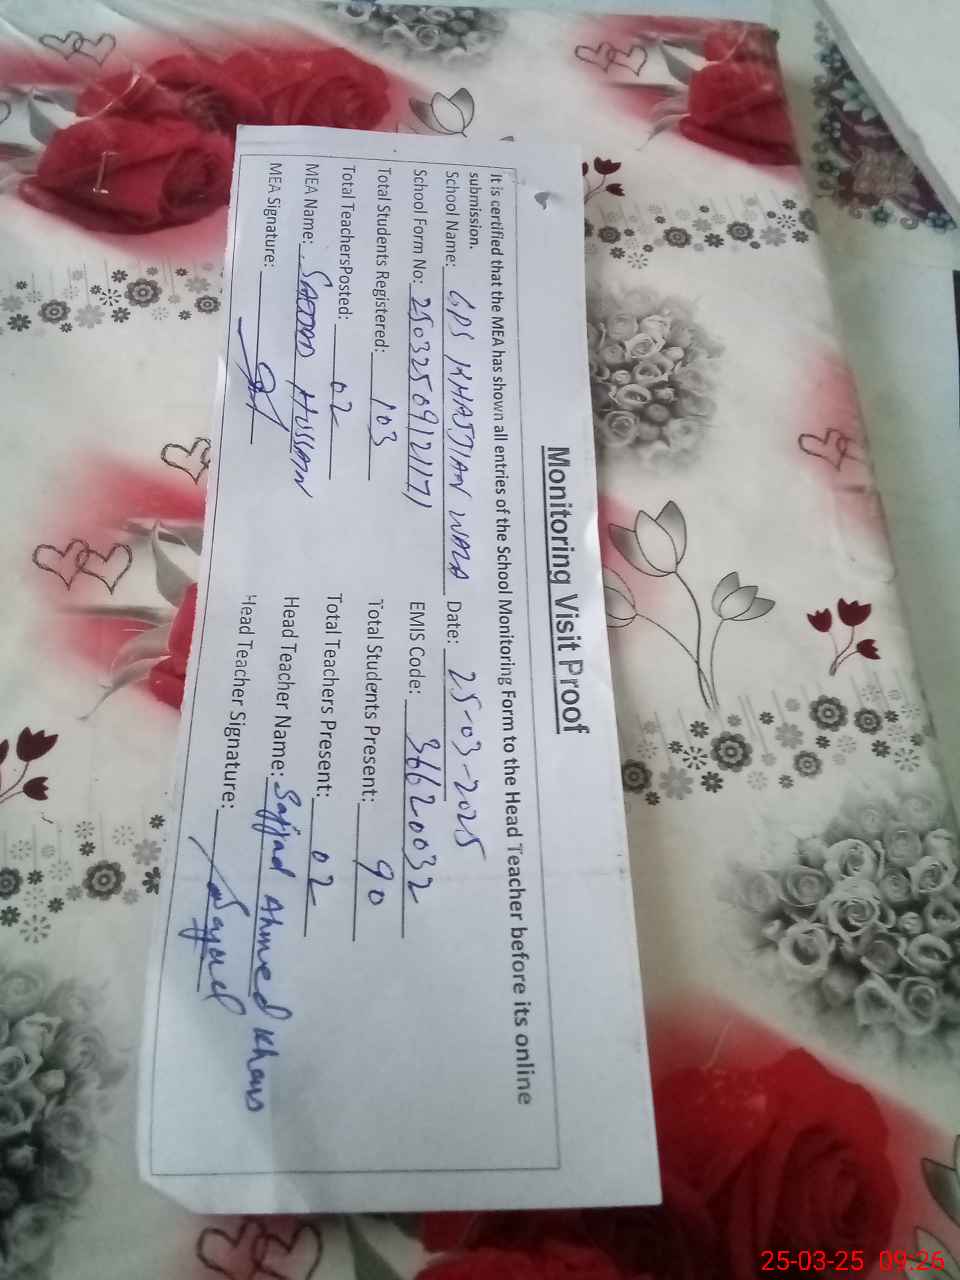 Monitoring Visit Proof
It is certified that the MEA has shown all entries of the School Monitoring Form to the Head Teacher before its online
submission.
School Name: GPS KHAJJIAN WALA Date: 25-03-2025
School Form No: 25032509121171 EMIS Code: 36620032
Total Students Registered: 103 Total Students Present: 90
Total TeachersPosted: 02 Total Teachers Present: 02
MEA Name: HUSSAIN Head Teacher Name: Sajjad Ahmed Khan
MEA Signature: Head Teacher Signature: Sajjad
25-03-25 09:26